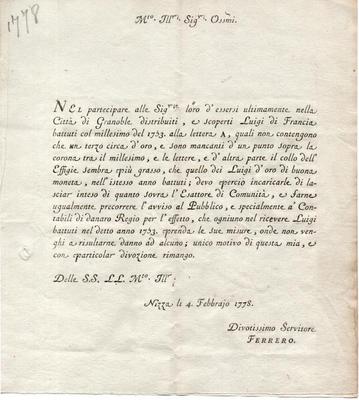 1778
M.to Ill.ri Sig.ri Oss.mi
NEL partecipare alle Sig.rie loro d'essersi ultimamente nella
Città di Granoble distribuiti, e scoperti Luigi di Francia
battuti col millesimo del 1753. alla lettera A, quali non contengono
che un terzo circa d'oro, e sono mancanti d'un punto sopra la
corona tra il millesimo, e le lettere, e d'altra parte il collo dell'
Effigie sembra epiù grasso, che quello dei Luigi d'oro di buona
moneta, nell'istesso anno battuti; devo epercio incaricarle di la-
sciar inteso di quanto sovra l'Esattore di Comunità, e farne
ugualmente precorrere l'avviso al Pubblico, e specialmente a' Con-
tabili di danaro Regio per l'effetto, che ogniuno nel ricevere Luigi
battuti nel detto anno 1753. eprenda le sue misure, onde non ven-
ghi a risultarne danno ad alcuno; unico motivo di questa mia, e
con eparticolar divozione rimango.
Delle S.S. LL. M.to Ill.ri
Nizza li 4. Febbrajo 1778.
Divotissimo Servitore
FERRERO.